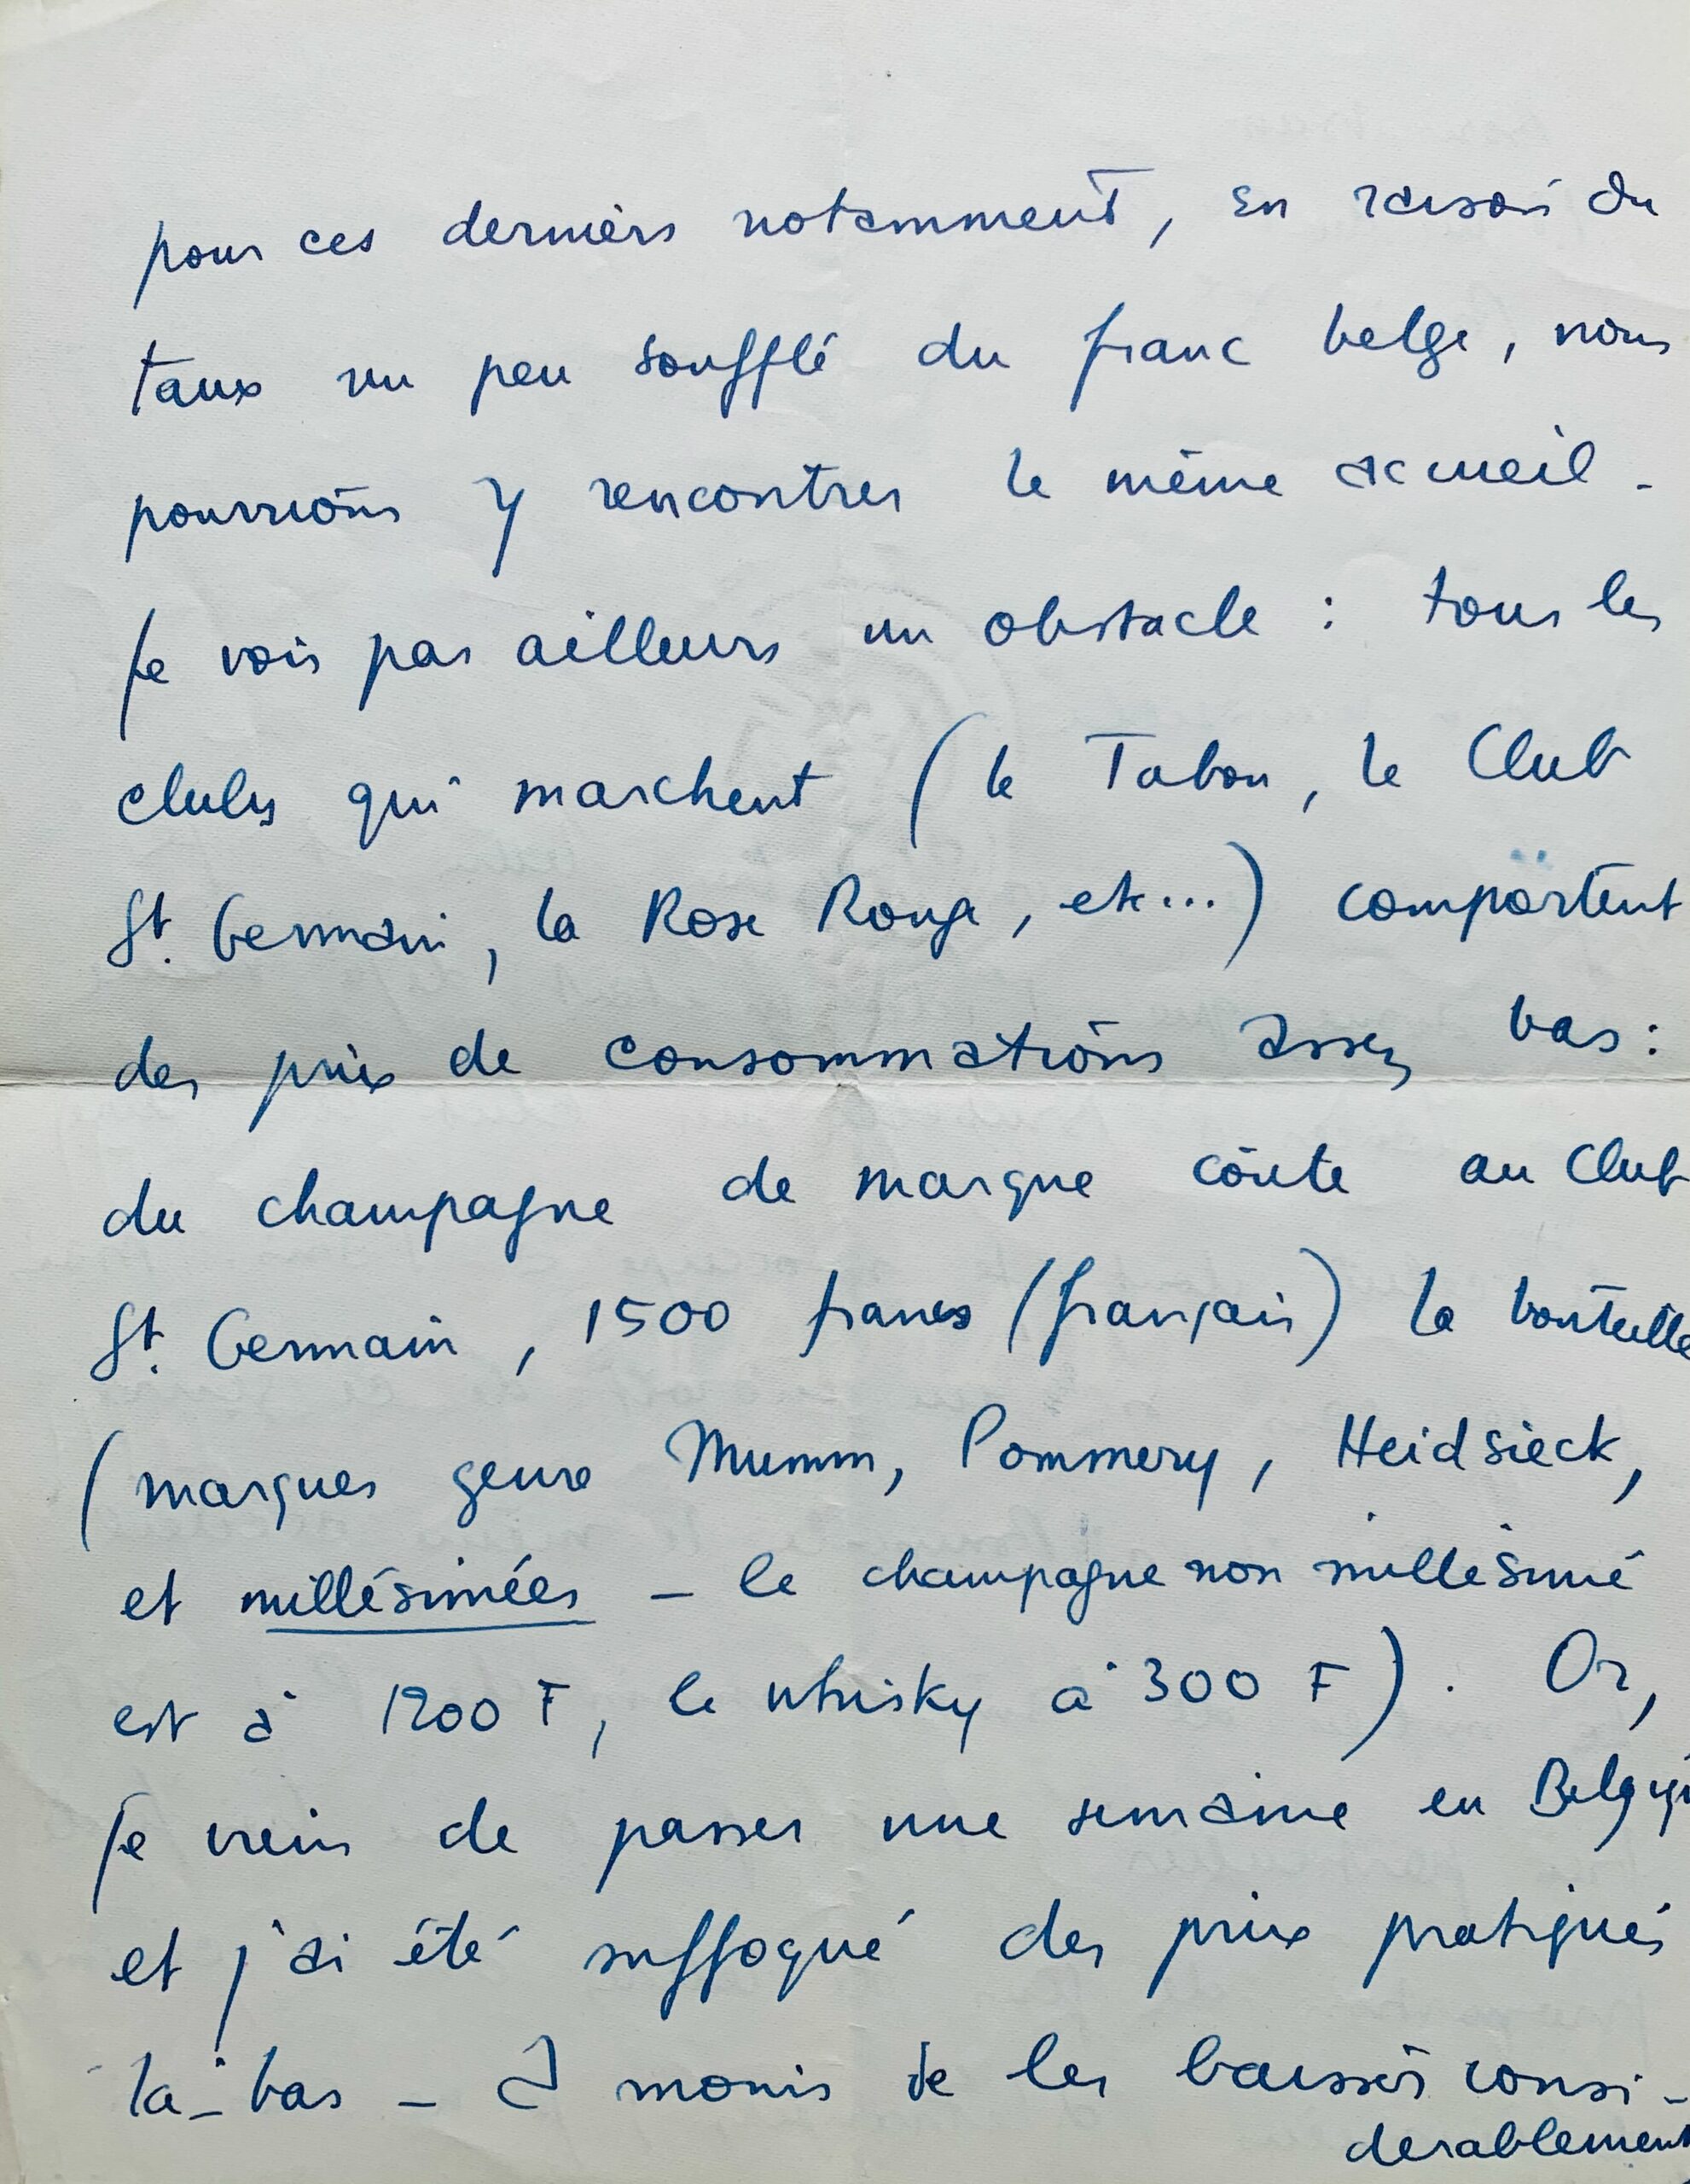 pour ces derniers notamment, en raison du
taux un peu soufflé du franc belge, nous
pourrions y rencontrer le même accueil -
Je vois par ailleurs un obstacle : tous les
clubs qui marchent (le Tabou, le Club
St. Germain, la Rose Rouge, etc...) comportent
des prix de consommations assez bas :
du champagne de marque coûte au Club
St. Germain, 1500 francs (français) la bouteille
(marques genre Mumm, Pommery, Heidsieck,
et millésimées - le champagne non millésimé
est à 1200 F, le whisky à 300 F). Or,
Je viens de passer une semaine en Belgique
et j'ai été suffoqué des prix pratiqués
là-bas - A moins de les baisser consi-
dérablement